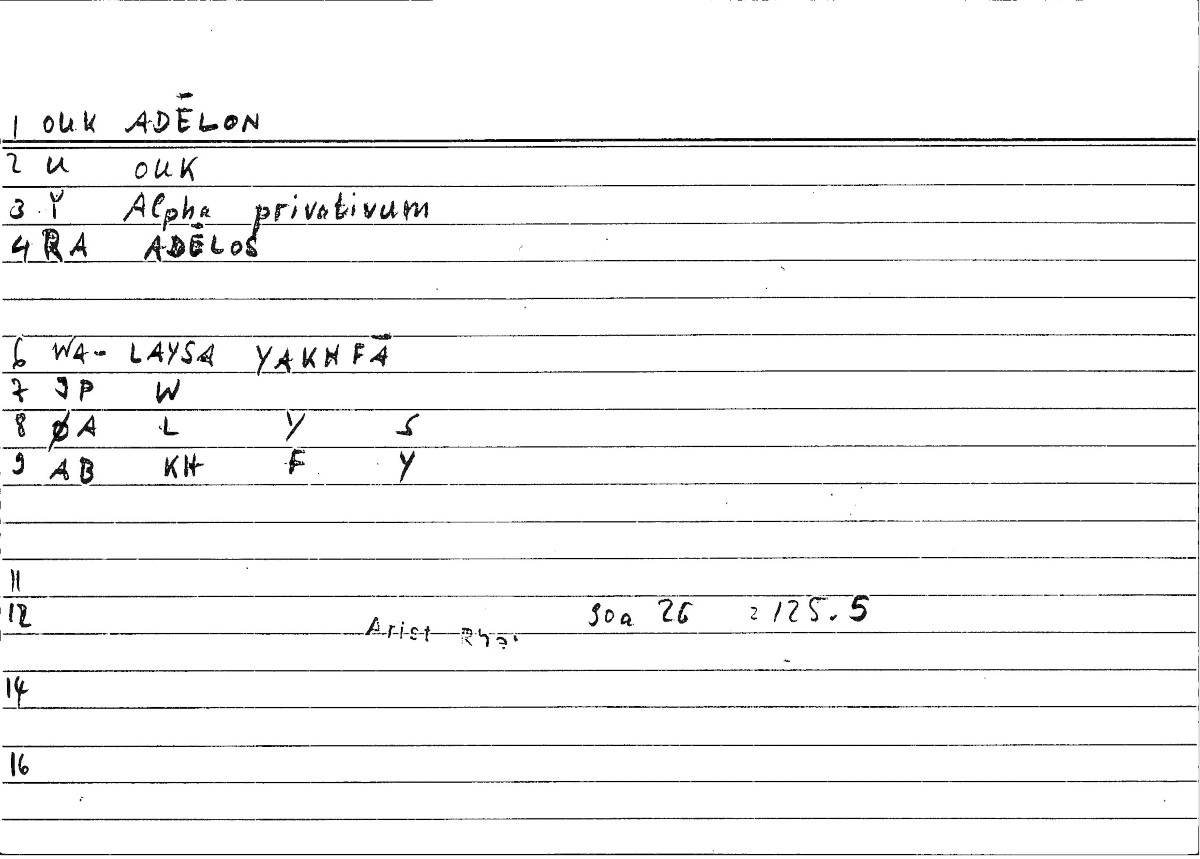 1 OUK ADĒLON
2 U OUK
3 Y Alpha privativum
4 RA ADĒLOS
6 WA- LAYSA YAKHFĀ
7 JP W
8 ØA L Y S
9 AB KH F Y
11
12 Arist Rhe. 90a 26 2 125.5
14
16